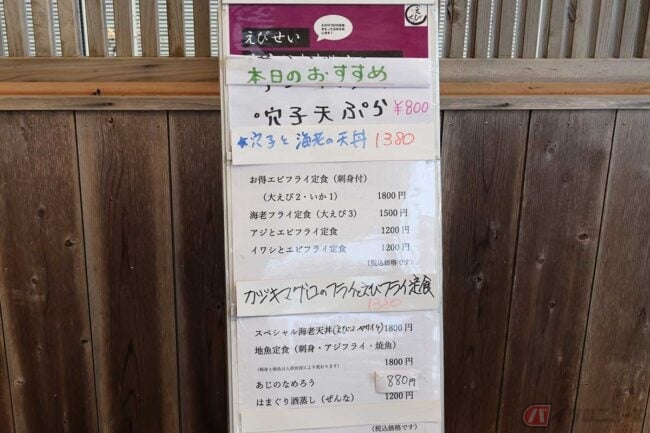 えびせい
本日のおすすめ
穴子天ぷら ¥800
穴子と海老の天丼 1380
お得エビフライ定食（刺身付）
（大えび2・いか1） 1800円
海老フライ定食（大えび3） 1500円
アジとエビフライ定食 1200円
イワシとエビフライ定食 1200円
（税込価格です）
カジキマグロのフライとエビフライ定食
1380
スペシャル海老天丼 1800円
地魚定食（刺身・アジフライ・焼魚）
1800円
あじのなめろう 880円
はまぐり酒蒸し（ぜんな） 1200円
（税込価格です）